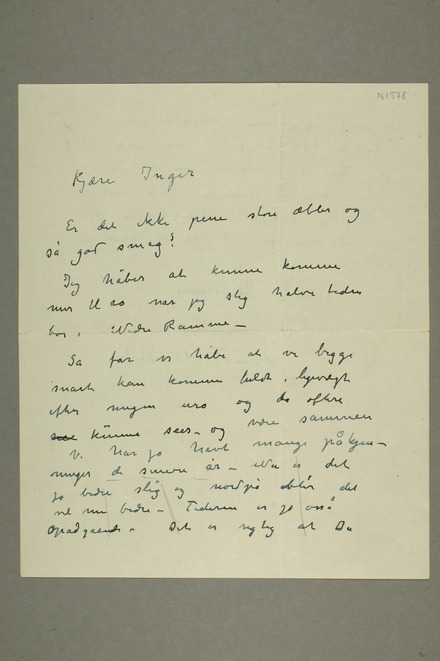 N.1578
Kjære Inger
Er det ikke pene store æbler og
så god smag?
Jeg håber at kunne komme
når jeg slig halve tiden
bor i Nedre Ramme –
Så får vi håbe at vi begge
snart kan komme fuldt i ligevægt
efter megen uro og da oftere
kunne sees – og være sammen
Vi har jo havt mange påkjen-
ninger de senere år – Nu er det
jo bedre slig og nordpå blir det
vel nu bedre – Tiderne er jo også
opadgående – Det er rigtig at Du